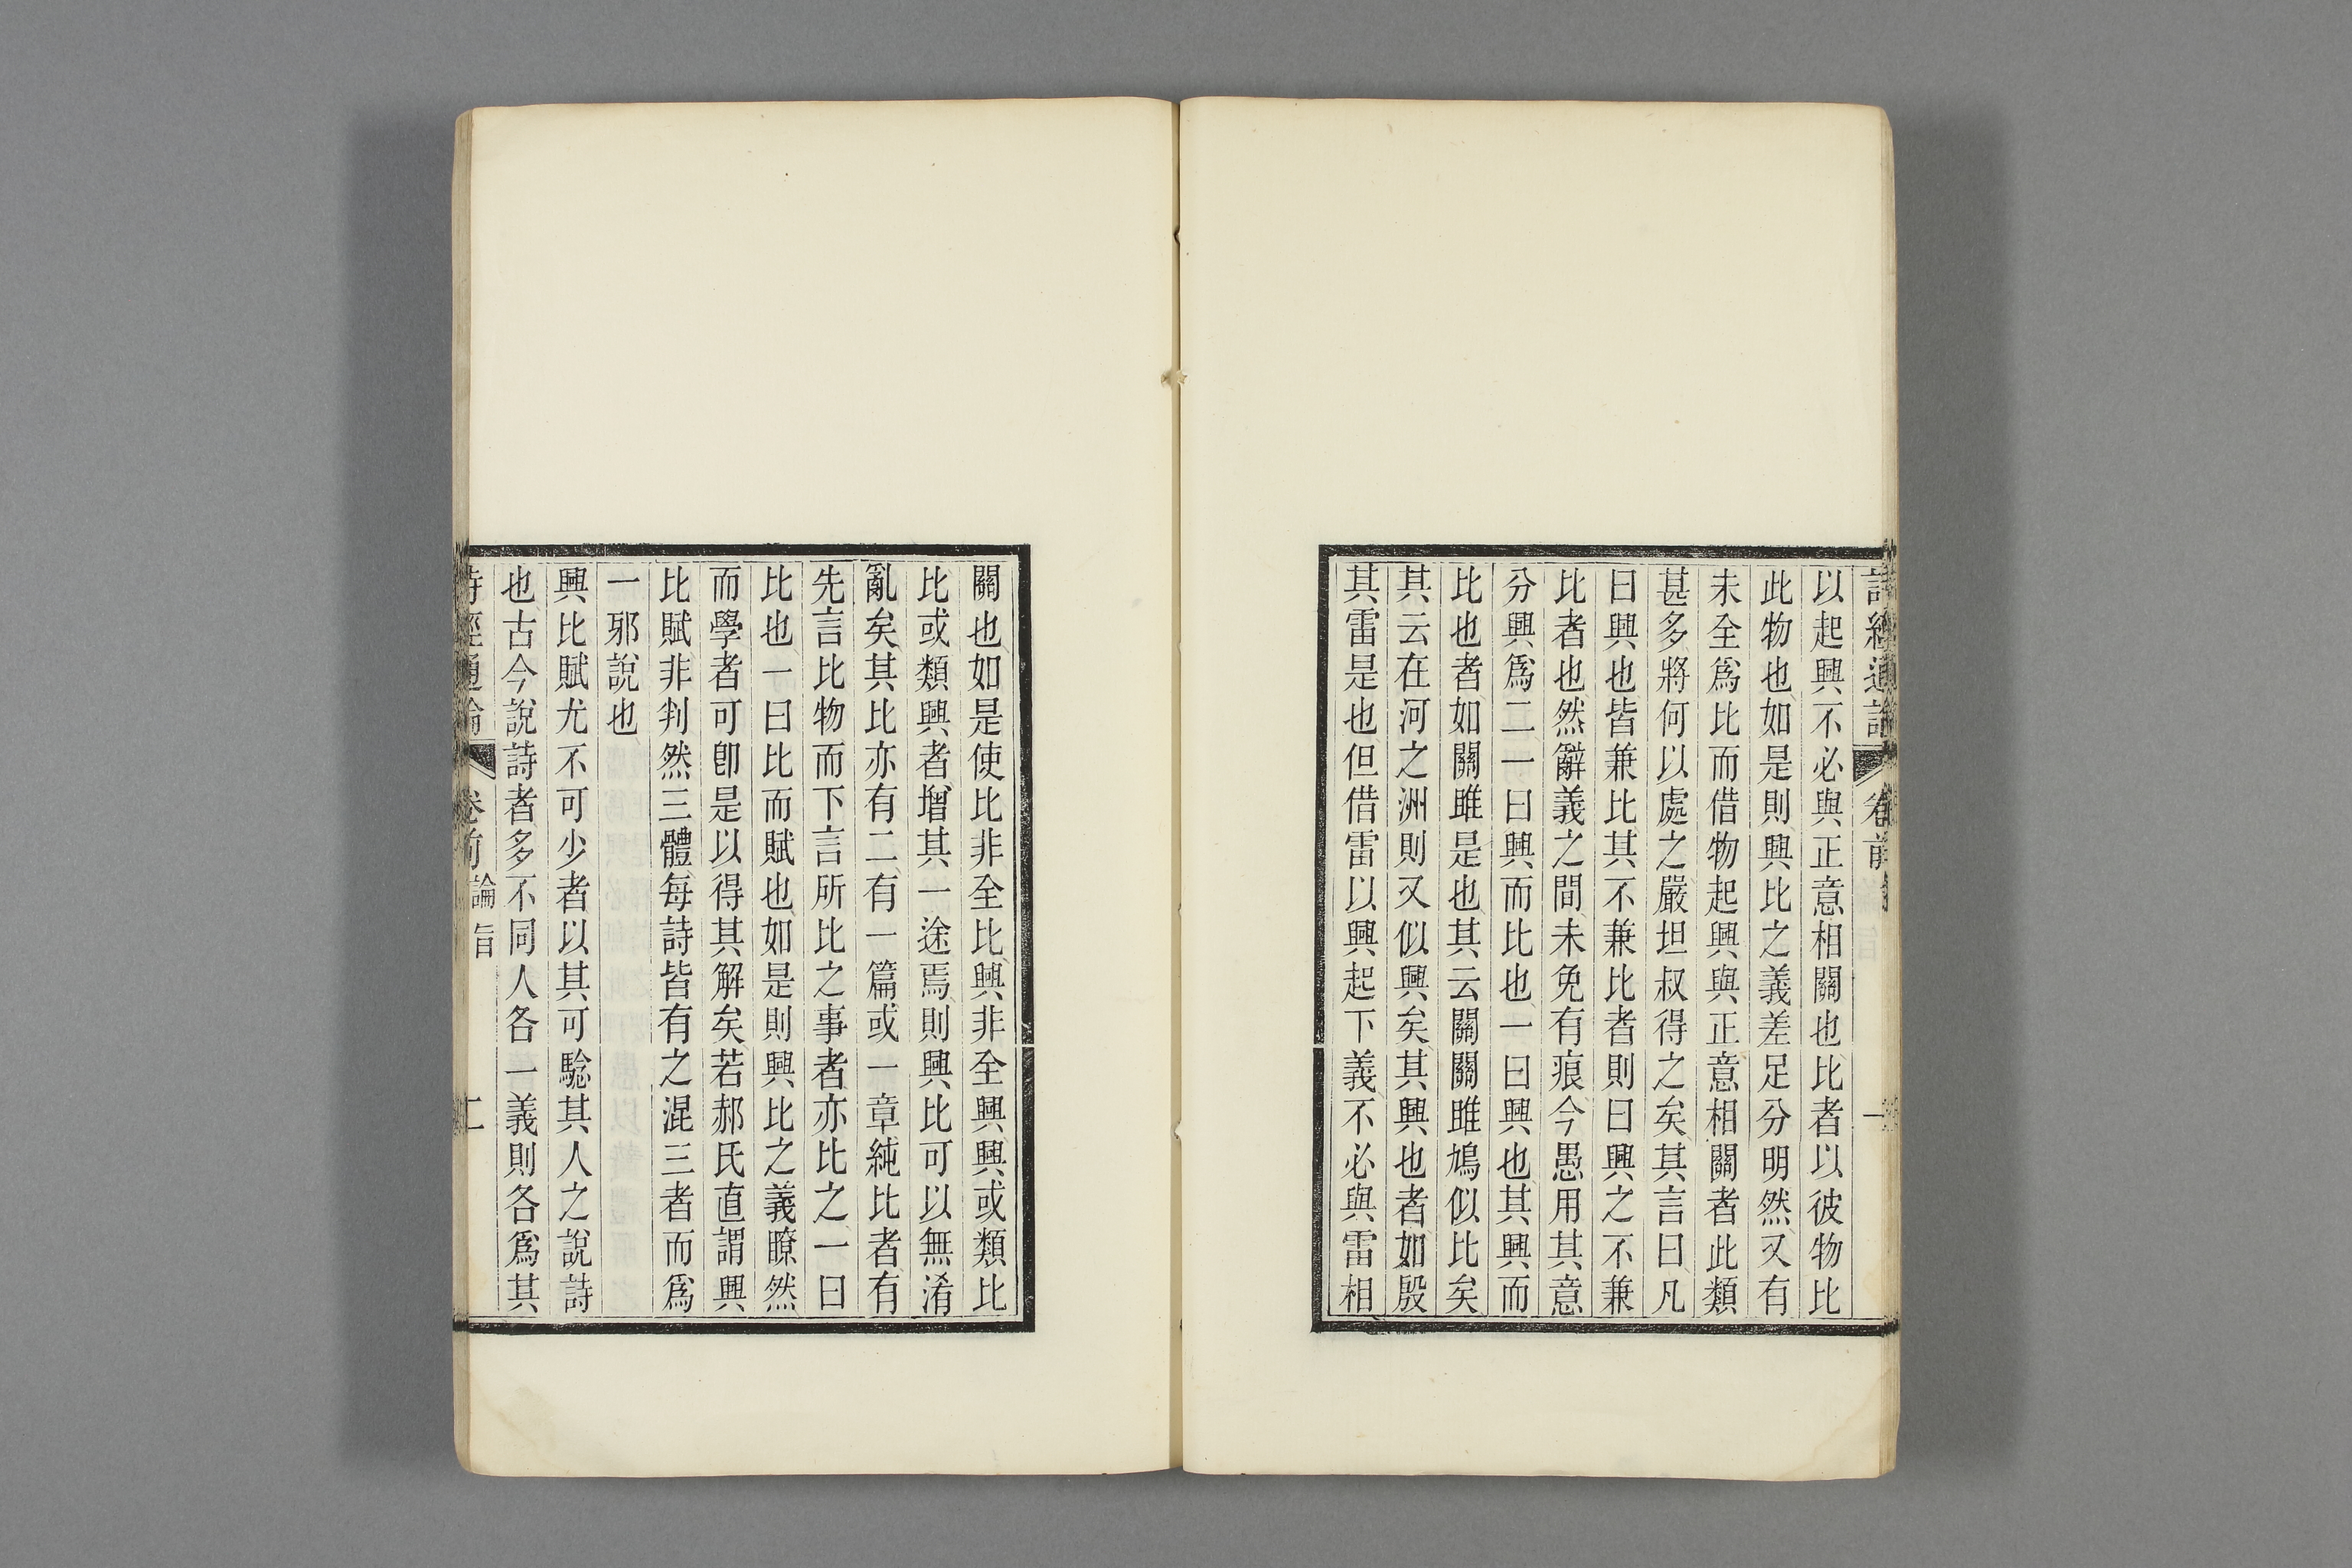 詩經通論 卷前 一
以起興不必與正意相關也比者以彼物比
此物也如是則興比之義差足分明然又有
未全爲比而借物起興與正意相關者此類
甚多將何以處之嚴坦叔得之矣其言曰凡
曰興也皆兼比其不兼比者則曰興之不兼
比者也然辭義之間未免有痕今愚用其意
分興爲二一曰興而比也一曰興也其興而
比也者如關雎是也其云關關雎鳩似比矣
其云在河之洲則又似興矣其興也者如殷
其雷是也但借雷以興起下義不必與雷相
關也如是使比非全比興非全興興或類比
比或類興者增其一途焉則興比可以無淆
亂矣其比亦有二有一篇或一章純比者有
先言比物而下言所比之事者亦比之一曰
比也一曰比而賦也如是則興比之義瞭然
而學者可卽是以得其解矣若郝氏直謂興
比賦非判然三體每詩皆有之混三者而爲
一邪說也
興比賦尤不可少者以其可騐其人之說詩
也古今說詩者多不同人各一義則各爲其
詩經通論 卷前 論旨 二